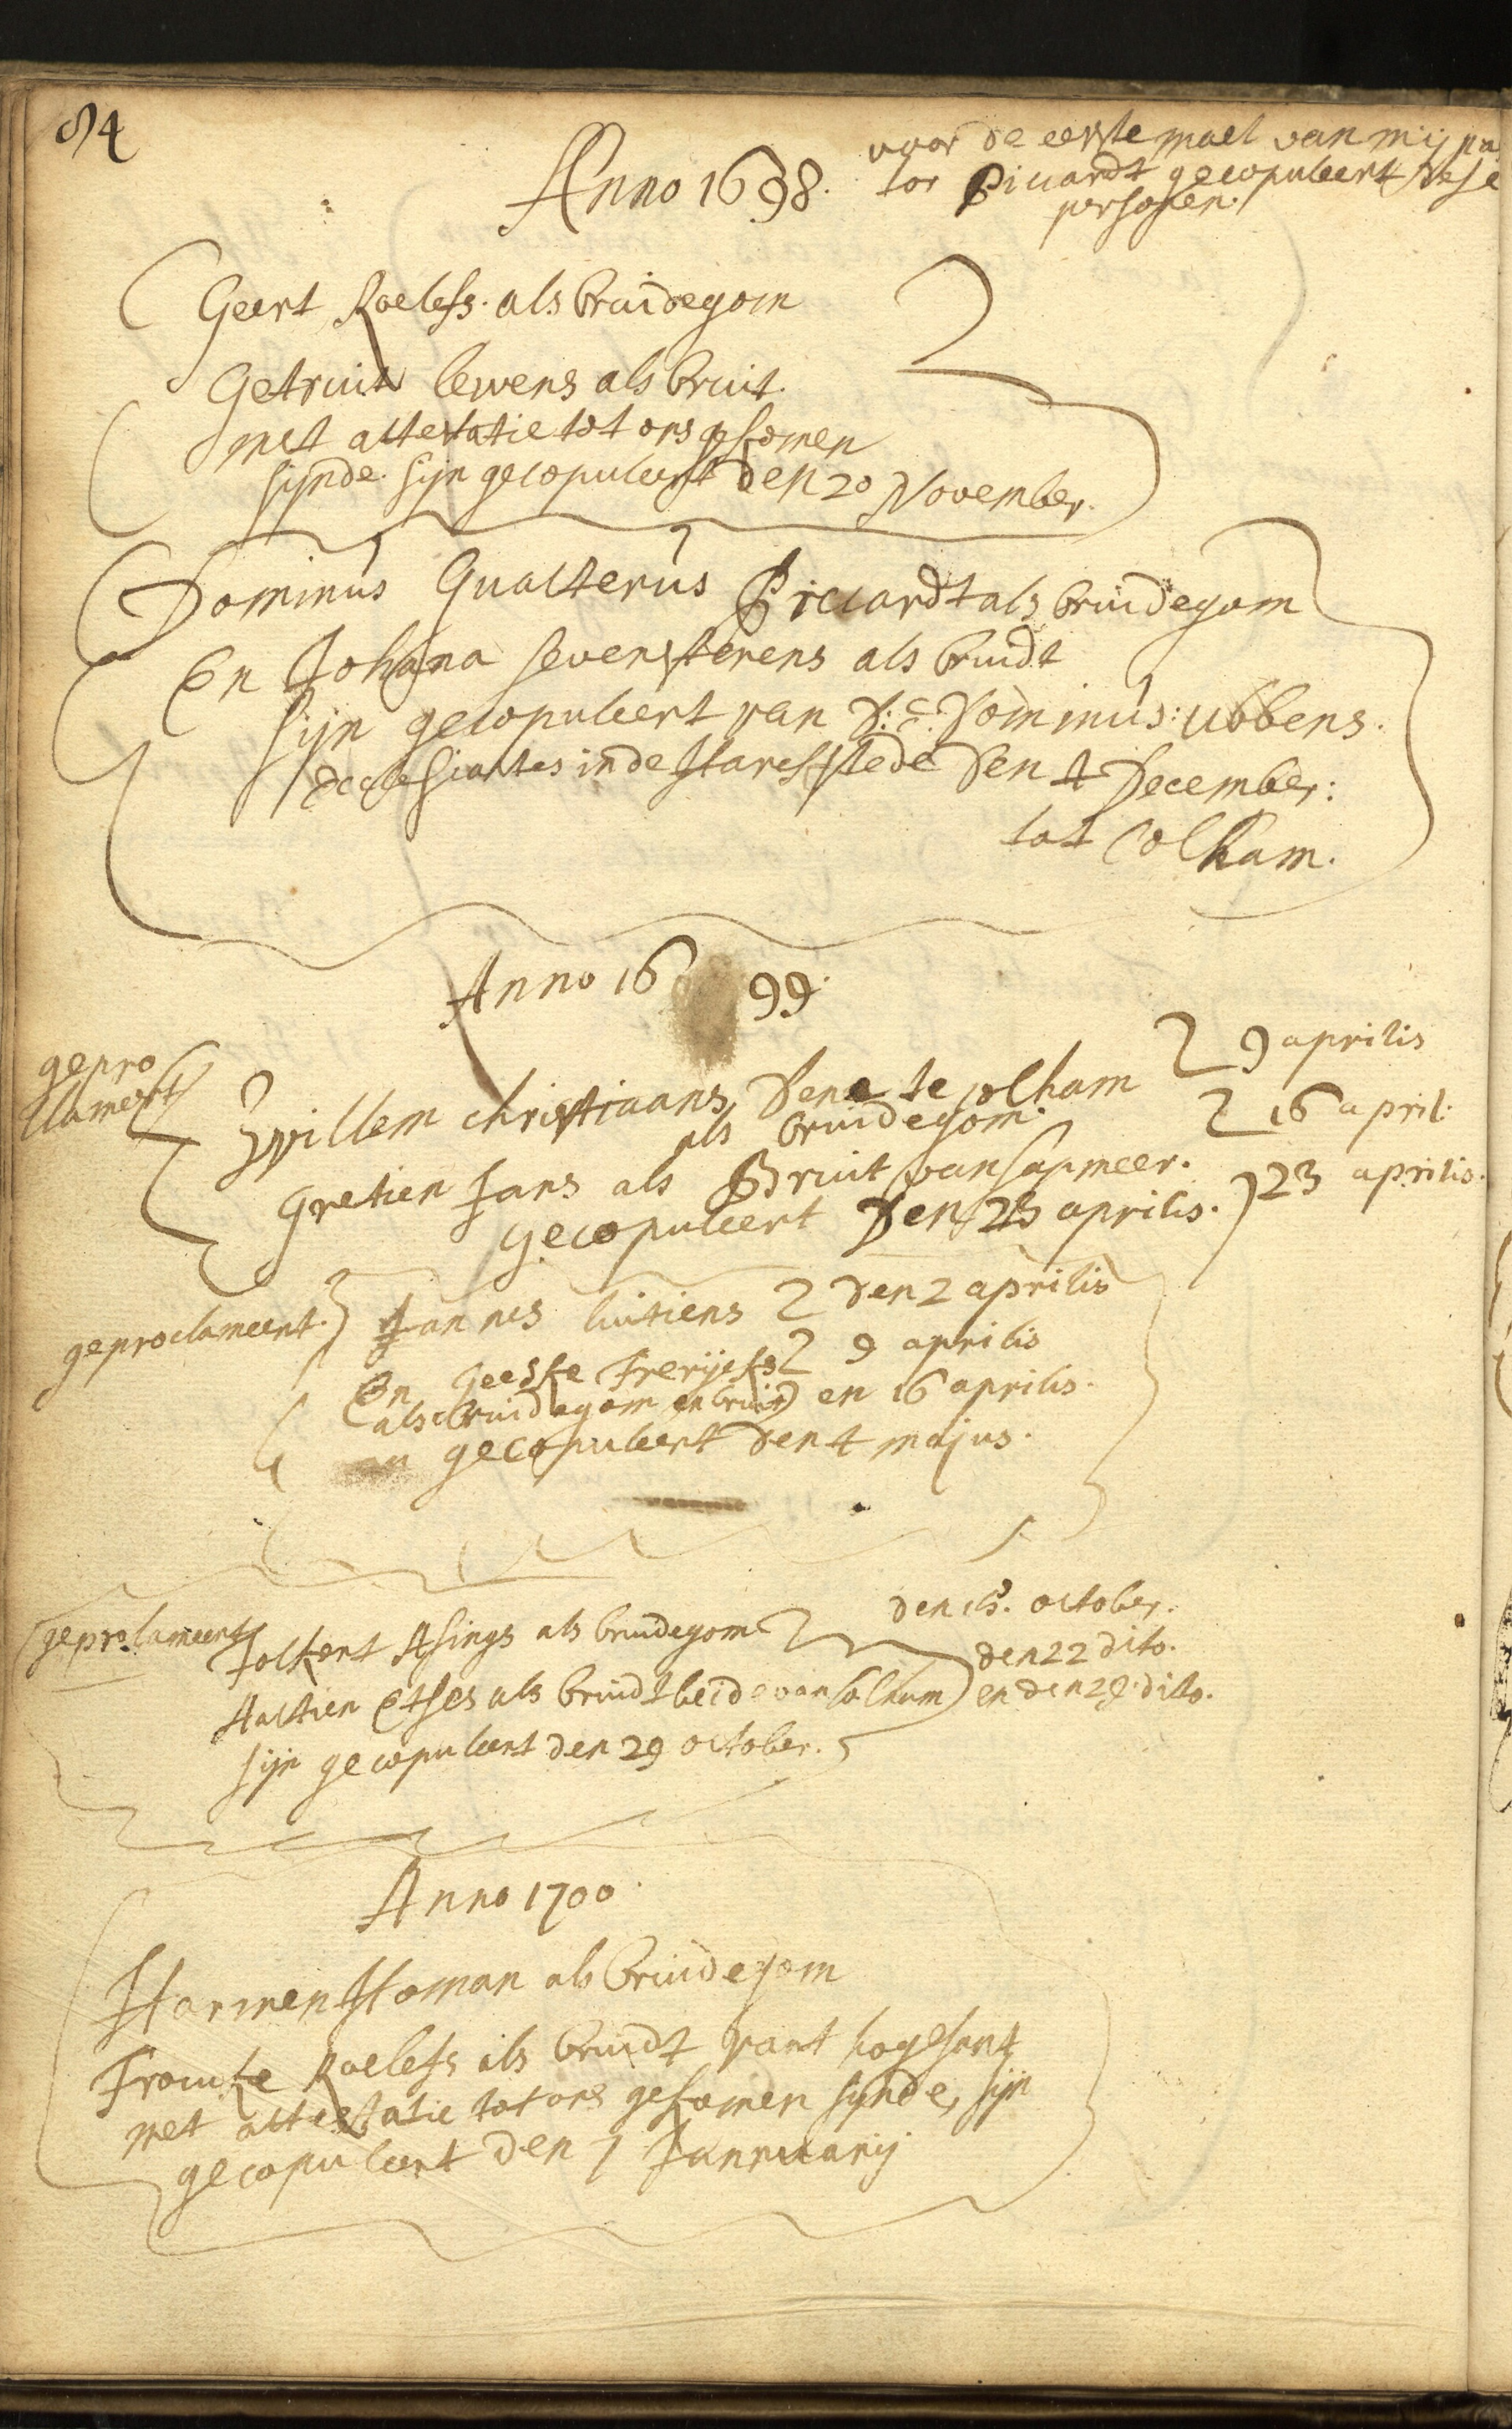 84
Anno 1698.
voor de eerste mael van mij pa
tor Piccardt gecopuleert dese
persosen.
Geert Roelefs. als bruidegom
Getruit lewens als bruit.
met attestatie tot ons gekomen
sijnde. sijn gecopuleert den 20 November.
Dominus Gualterus Piccardt als bruidegom
En Johana severterens als bruidt
sijn gecopuleert van D: Dominus: Ubbens.
Ecclesiastes in de Harkstede den 4 December:
tot Colham.
Anno 16 99.
gepro
clameert
Willem christiaans Dene te colham
als bruidegom.
Gretien Jans als Bruit van sapmeer.
gecopuleert Den 23 aprilis.
9 aprilis
16 april.
23 aprilis.
geproclameert.
Jannes luitiens den 2 aprilis
En geeske Frerijcks 9 aprilis
als bruidegom en bruit en 16 aprilis.
en gecopuleert den 4 majus.
geproclameert
Folkert Asings als bruidegom
Aaltien Etses als bruidt beide van Colham
sijn gecopuleert den 29 october.
den 15. october.
den 22 dito.
en den 29. dito.
Anno 1700.
Harmen Homan als bruidegom
Frouke Roelefs als bruidt vant hogesant
met attestatie tot ons gekomen synde, sijn
gecopuleert den 7 Januarij